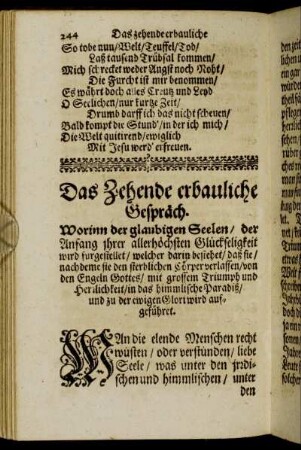 244 Das zehende erbauliche
So tobe nun/Welt/Teuffel/Tod/
Laß tausend Trübsal kommen/
Mich schrecket weder Angst noch Noht/
Die Furcht ist mir benommen/
Es währt doch alles Creutz und Leyd
O Seelichen/nur kurtze Zeit/
Drumb darff ich das nicht scheuen/
Bald kompt die Stund'/in der ich mich/
Die Welt quitirend/ewiglich
Mit Jesu werd' erfreuen.
Das Zehende erbauliche
Gespräch.
Worinn der glaubigen Seelen/ der
Anfang ihrer allerhöchsten Glückseligkeit
wird fürgestellet/ welcher darin bestehet/ daß sie/
nachdeme sie den sterblichen Cörper verlassen/von
den Engeln Gottes/ mit grossem Triumph und
Herrlichkeit/in das himmlische Paradiß/
und zu der ewigen Glori wird auf-
geführet.
WAn die elende Menschen recht
wüsten/ oder verstünden/ liebe
Seele/ was unter den irrdi-
schen und himmlischen/ unter
den